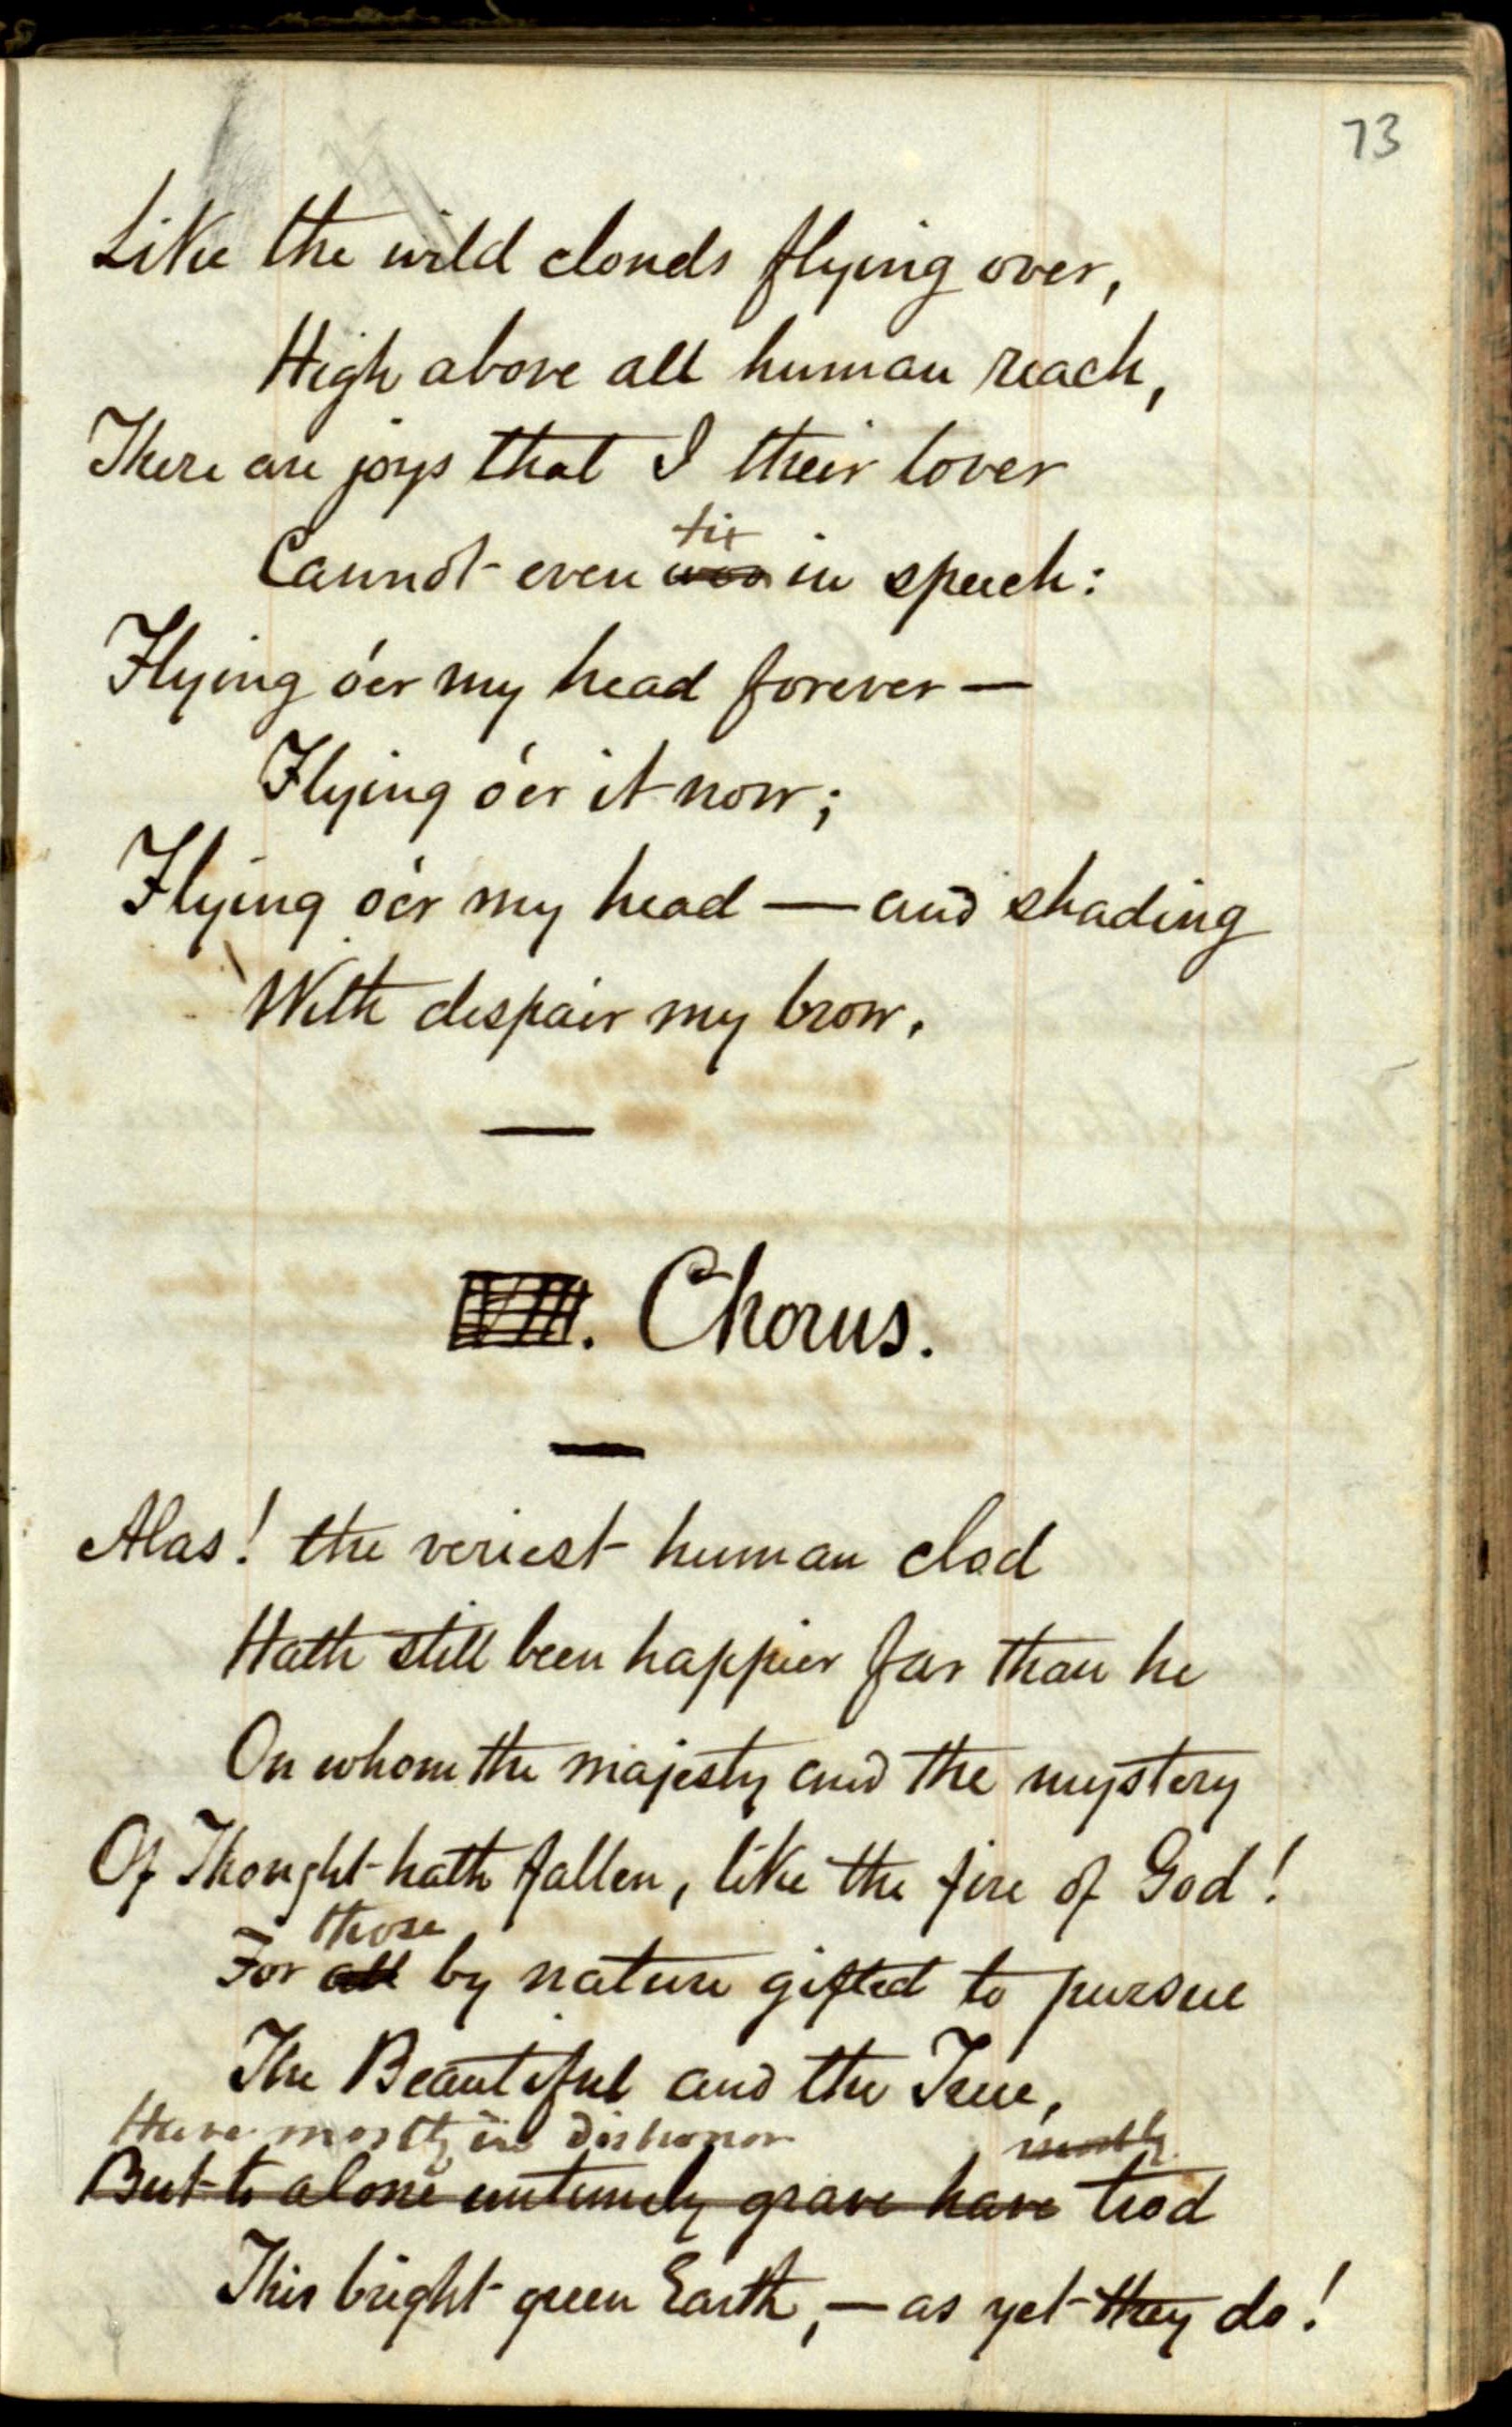 73
Like the wild clouds flying over,
High above all human reach,
There are joys that I their lover
fix
Cannot even woo in speech:
Flying o'er my head forever —
Flying o'er it now;
Flying o'er my head — and shading
With despair my brow.
VIII. Chorus.
Alas! the veriest human clod
Hath still been happier far than he
On whom the majesty and the mystery
Of Thought hath fallen, like the fire of God!
those
For all by nature gifted to pursue
The Beautiful and the True,
Have mostly in dishonor mostly
But to alone untimely grave have trod
This bright green Earth, — as yet they do!